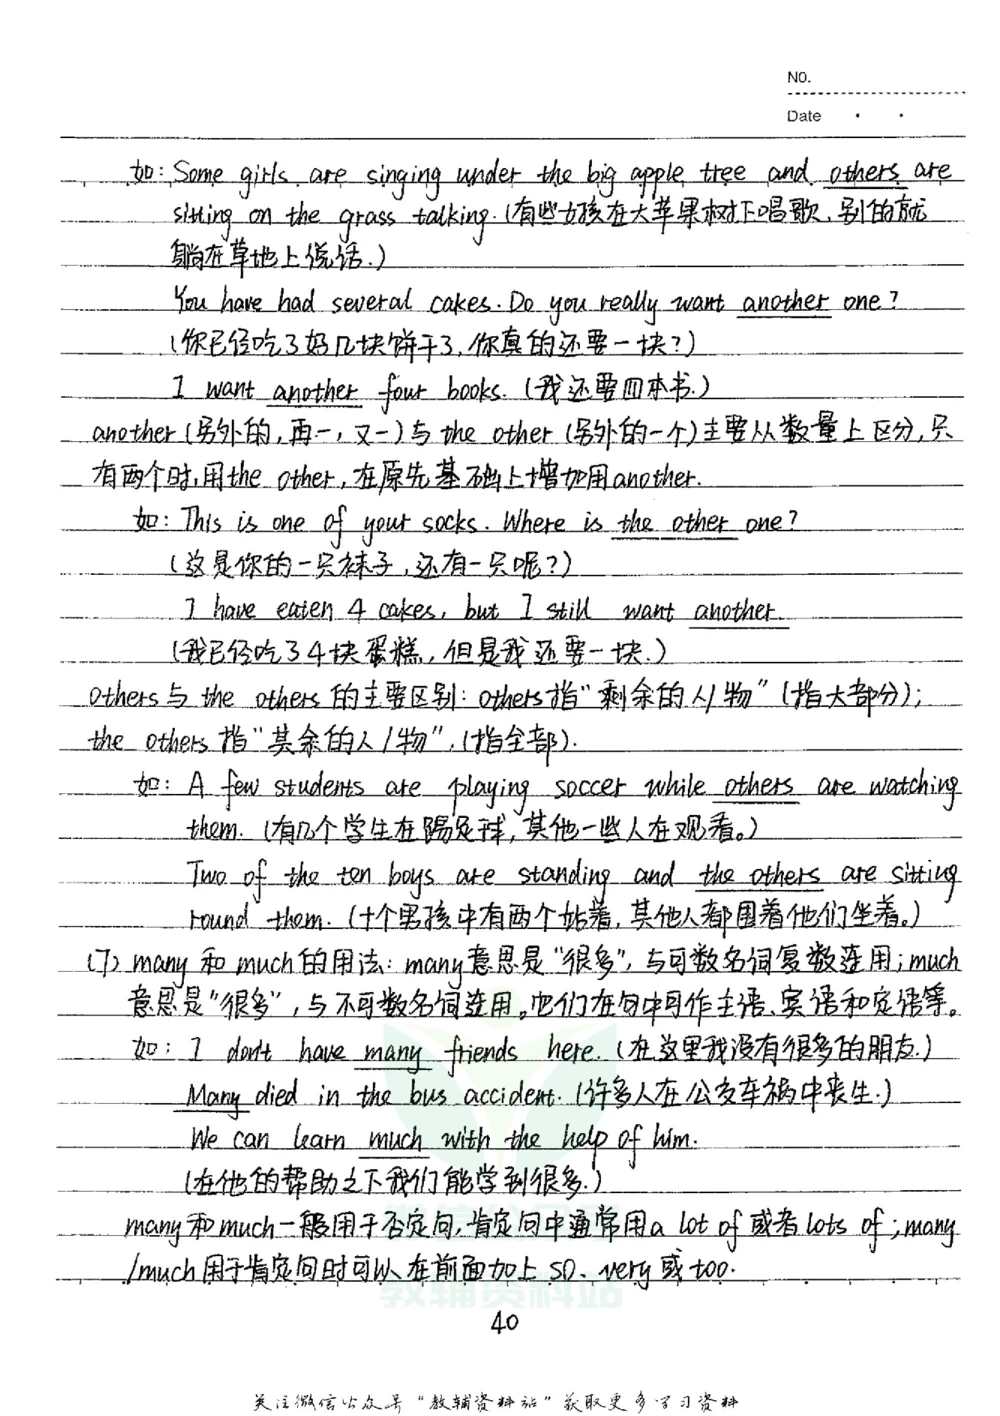 NO.
Date
如: Some girls are singing under the big apple tree and others are
sitting on the grass talking. (有些女孩在大苹果树下唱歌, 别的就
躺在草地上说话.)
You have had several cakes. Do you really want another one?
(你已经吃了好几块饼干了, 你真的还要一块?)
I want another four books. (我还要四本书.)
another (另外的, 再一, 又一) 与 the other (另外的一个) 主要从数量上区分, 只
有两个时, 用 the other, 在原先基础上增加用 another.
如: This is one of your socks. Where is the other one?
(这是你的一只袜子, 还有一只呢?)
I have eaten 4 cakes, but I still want another.
(我已经吃了4块蛋糕, 但是我还要一块.)
others 与 the others 的主要区别: others 指“剩余的人/物” (指大部分);
the others 指“其余的人/物”, (指全部).
如: A few students are playing soccer while others are watching
them. (有几个学生在踢足球, 其他一些人在观看。)
Two of the ten boys are standing and the others are sitting
round them. (十个男孩中有两个站着, 其他人都围着他们坐着。)
(7) many 和 much 的用法: many 意思是“很多”, 与可数名词复数连用; much
意思是“很多”, 与不可数名词连用。它们在句中可作主语、宾语和定语等。
如: I don't have many friends here. (在这里我没有很多的朋友.)
Many died in the bus accident. (许多人在公交车祸中丧生.)
We can learn much with the help of him.
(在他的帮助之下我们能学到很多.)
many 和 much 一般用于否定句, 肯定句中通常用 a lot of 或者 lots of; many
/much 用于肯定句时可以在前面加上 so、very 或 too.
教辅资料站
40
关注微信公众号“教辅资料站”获取更多学习资料